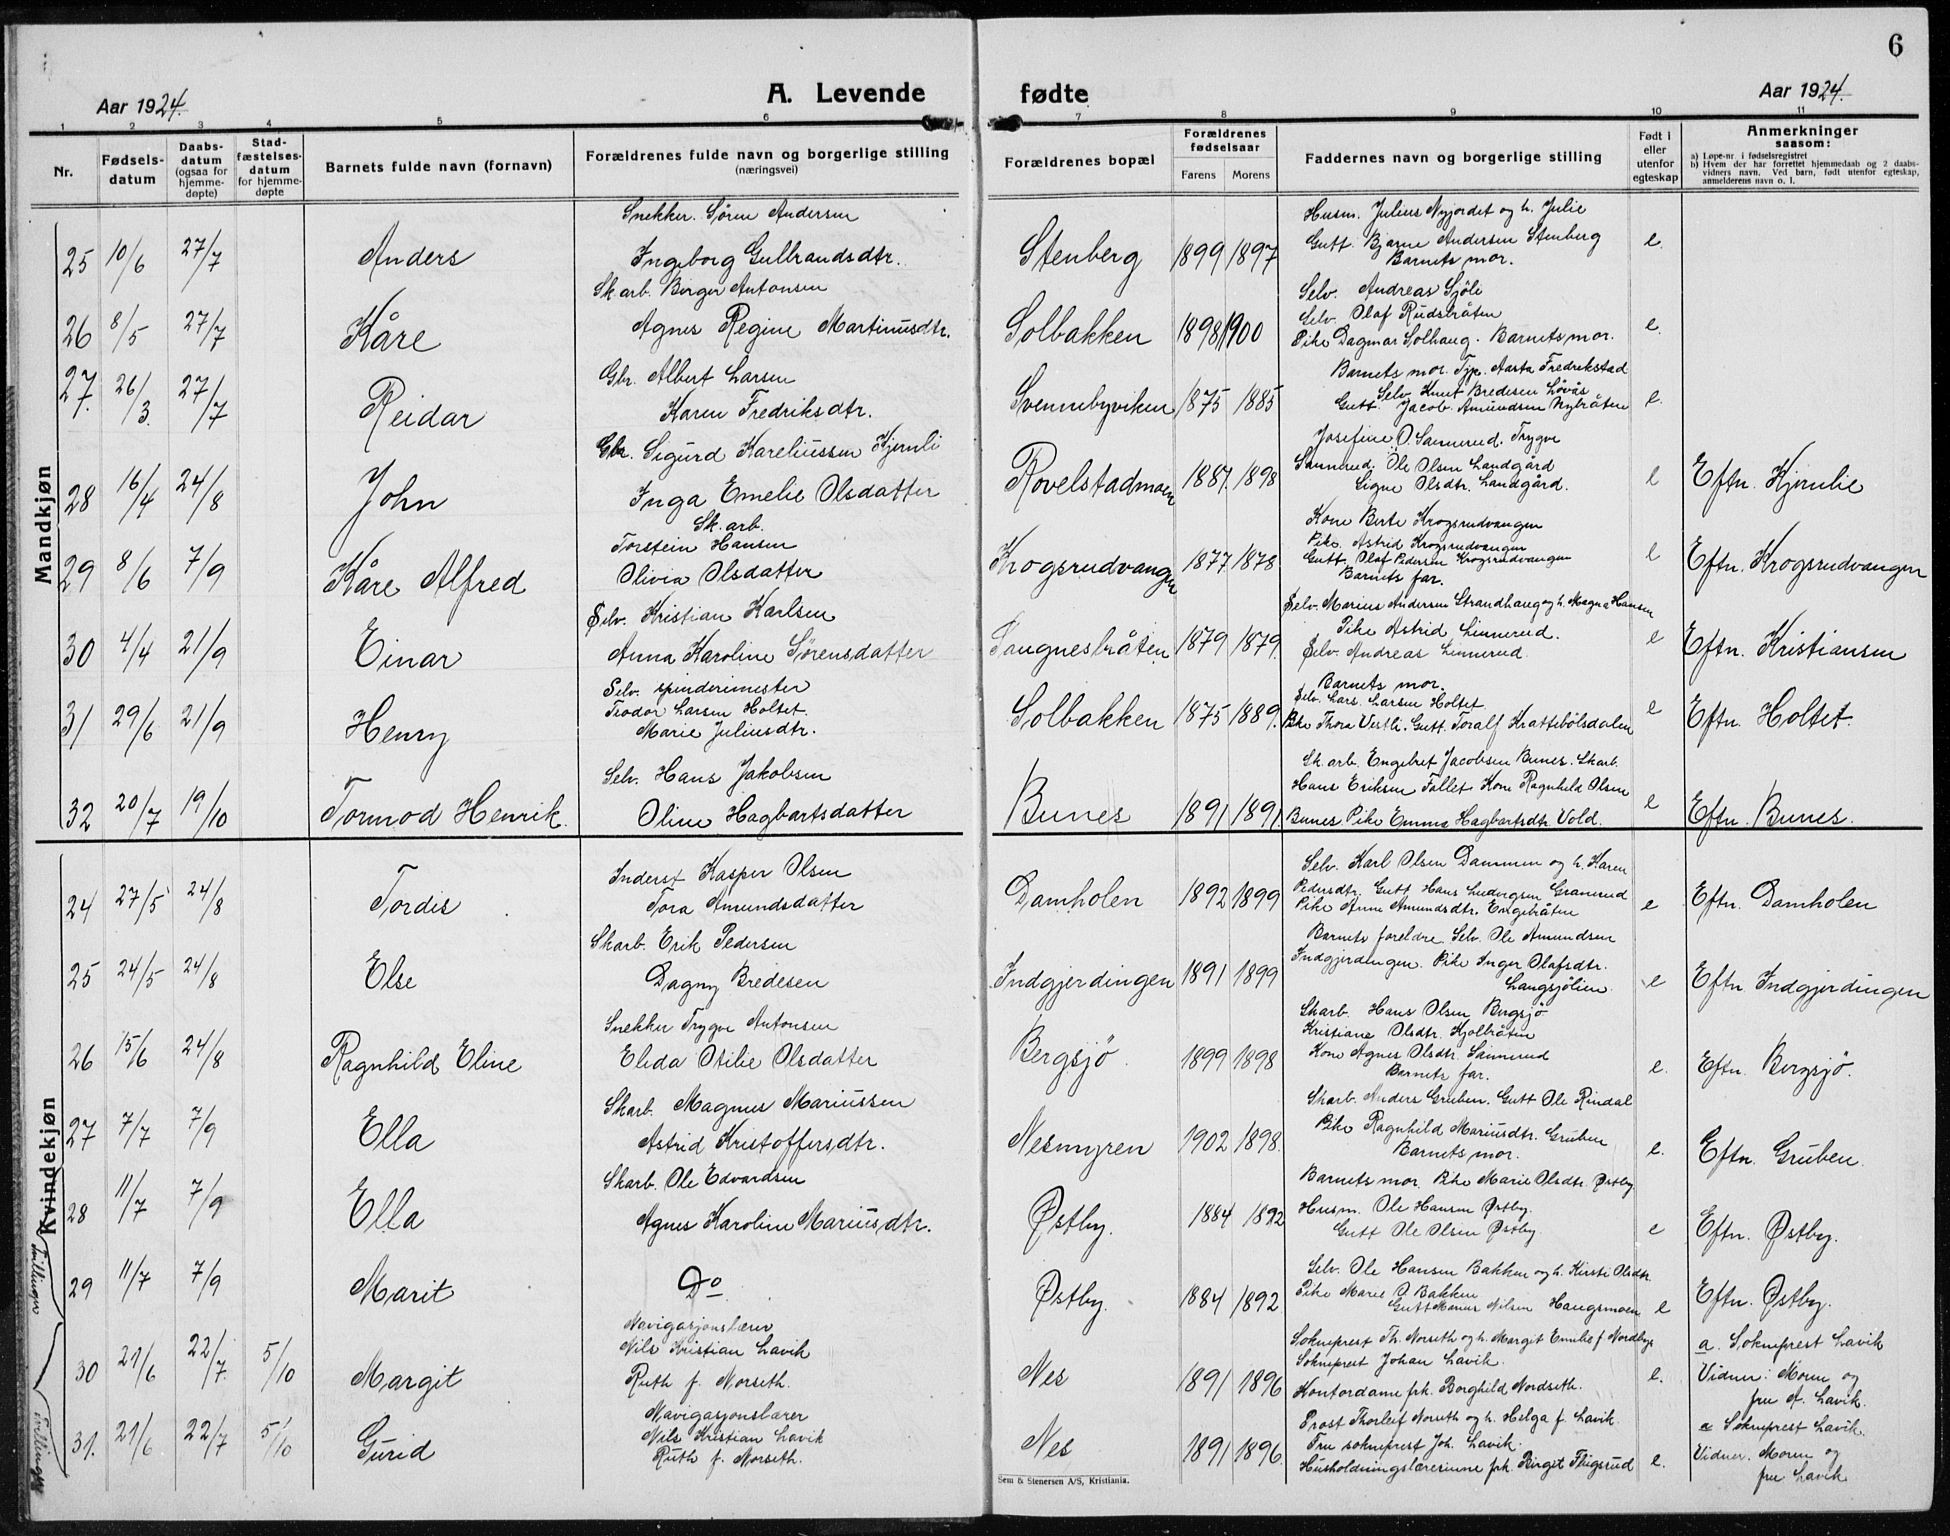 6
Aar 1924.
A. Levende fødte
Aar 1924.
1 2 3 4 5 6 7 8 9 10 11
Nr.
Fødsels-
datum
Daabs-
datum
(ogsaa for
hjemme-
døpte)
Stad-
fæstelses-
datum
for hjemme-
døpte
Barnets fulde navn (fornavn)
Forældrenes fulde navn og borgerlige stilling
(næringsvei)
Forældrenes bopæl
Forældrenes
fødselsaar
Farens Morens
Faddernes navn og borgerlige stilling
Født i
eller
utenfor
egteskap
Anmerkninger
saasom:
a) Løpe-nr. i fødselsregistret
b) Hvem der har forrettet hjemmedaab og 2 daabs-
vidners navn. Ved barn, født utenfor egteskap,
anmelderens navn o. l.
Mandkjøn
25 10/6 27/7 Anders
Snekker. Søren Andersen
Ingeborg Gulbrandsdtr.
Stenberg 1899 1897
Husm. Julius Nyjordet og h. Julie
Gutt. Bjarne Andersen Stenberg
Barnets mor.
e.
26 8/5 27/7 Kåre
Sk.arb. Berger Antonsen
Agnes Regine Martinusdtr.
Solbakken 1898 1900
Selv. Andreas Sjöli
Selv. Olaf Rudsbråten
Pike Dagmar Solhaug. Barnets mor.
e.
27. 26/3. 27/7 Reidar
Gbr. Albert Larsen
Karen Fredriksdtr.
Svennebyviken 1875 1885
Barnets mor. Tjp. Aasta Fredrikstad
Selv. Knut Bredesen Lövås
Gutt. Jacob Amundsen Nybråten
e.
28 16/4 24/8 John
Gbr. Sigurd Kareliussen Kjernli
Inga Emelie Olsdatter
Rovelstadmoen 1887. 1898
Josefine O. Sannerud. Trygve
Sannerud. Ole Olsen Landgård
Signe Olsdtr. Landgård.
e
Eftn. Kjernlie
29 8/6 7/9 Kåre Alfred
Sk. arb.
Torstein Hansen
Olivia Olsdatter
Krogsrudvangen 1877 1878
Kone Berte Krogsrudvangen
Pike. Astrid Krogsrudvangen
Gutt. Olaf Pedersen Krogsrudvangen
Barnets far.
e
Eftn. Krogsrudvangen
30 4/4 21/9 Einar
Selv. Kristian Karlsen
Anna Karoline Sörensdatter
Saugnesbråten 1879 1879.
Selv. Marius Andersen Strandhaug og h. Magna Hansen
Pike Astrid Linnerud.
Selv. Andreas Linnerud
e
Eftn. Kristiansen
31 29/6 21/9 Henry
Selv. spinderimester
Teodor Larsen Holtet.
Marie Juliusdtr.
Solbakken 1875 1889.
Barnets mor.
Selv. Lars Larsen Holtet
Pike Thora Vestli. Gutt. Toralf Krattebölsdalen
e
Eftn. Holtet.
32 20/7 19/10 Tormod Henrik.
Selv. Hans Jakobsen
Oline Hagbartsdatter
Bunes 1891 1891.
Sk. arb. Engebret Jacobsen Bunes. Skarb.
Hans Eriksen Tollet Kone Ragnhild Olsen
Bunes. Pike Emma Hagbartsdtr. Vold.
e
Eftn. Bunes.
Kvindekjøn
24 27/5 24/8 Tordis
Inderst Kasper Olsen
Tora Amundsdatter
Damholen 1892 1899
Selv. Karl Olsen Dammen og h. Karen
Pedersdtr. Gutt Hans Ludvigsen Granerud
Pike Anne Amundsdtr. Engebråten
e
Eftn. Damholen
25 24/5 24/8 Else
Skarb. Erik Pedersen
Dagny Bredesen
Indgjerdingen 1891 1899
Barnets foreldre. Selv. Ole Amundsen
Indgjerdingen. Pike Inger Olafsdtr.
Langsjölien.
e
Eftn Indgjerdingen
26 15/6 24/8 Ragnhild Eline
Snekker Trygve Antonsen
Elida Otilie Olsdatter
Bergsjö 1899 1898
Skarb. Hans Olsen Bergsjö
Kristiane Olsdtr. Kjolbråten
Kone Agnes Olsdtr. Sannerud
Barnets far.
e.
Eftn. Bergsjö.
27 7/7 7/9 Ella
Skarb. Magnus Mariussen
Astrid Kristoffersdtr.
Nesmyren 1902 1898.
Skarb. Anders Gruben. Gutt Ole Rindal
Pike Ragnhild Mariusdtr. Gruben
Barnets mor.
e.
Eftn. Gruben.
28 11/7 7/9 Ella
Skarb. Ole Edvardsen
Agnes Karoline Mariusdtr.
Østby. 1884 1892
Barnets mor. Pike Marie Olsdtr. Østby
Husm. Ole Hansen Østby.
Gutt Ole Olsen Østby.
e
Eftn. Østby.
Tvillinger
29 11/7 7/9 Marit
Do
Østby. 1884 1892
Selv. Ole Hansen Bakken og h. Kirsti Olsdtr.
Pike Marie O Bakken
Gutt Marius Nilsen Haugsmoen
e
Eftn. Østby.
30 21/6 22/7. 5/10 Margit
Navigasjonslærer
Nils Kristian Lavik
Ruth f. Norseth.
Nes 1891 1896
Sokneprest Th. Norseth og h. Margit Emilie f Nordbye
Sokneprest Johan Lavik.
Kontordame frk. Borghild Nordseth.
e.
a. Sokneprest Lavik
Vidner: Moren og
fru A. Lavik.
Tvillinger
31. 21/6 22/7 5/10 Gurid
Navigasjonslærer
Nils Kristian Lavik
Ruth f. Norseth.
Nes 1891 1896.
Prost Thorleif Norseth og h. Helga f. Lavik
Fru sokneprest Joh. Lavik.
Husholdningslærerinne frk. Birgit Flugsrud
e.
a Sokneprest Lavik.
Vidner. Moren og
fru Lavik
Sem & Stenersen A/S, Kristiania.